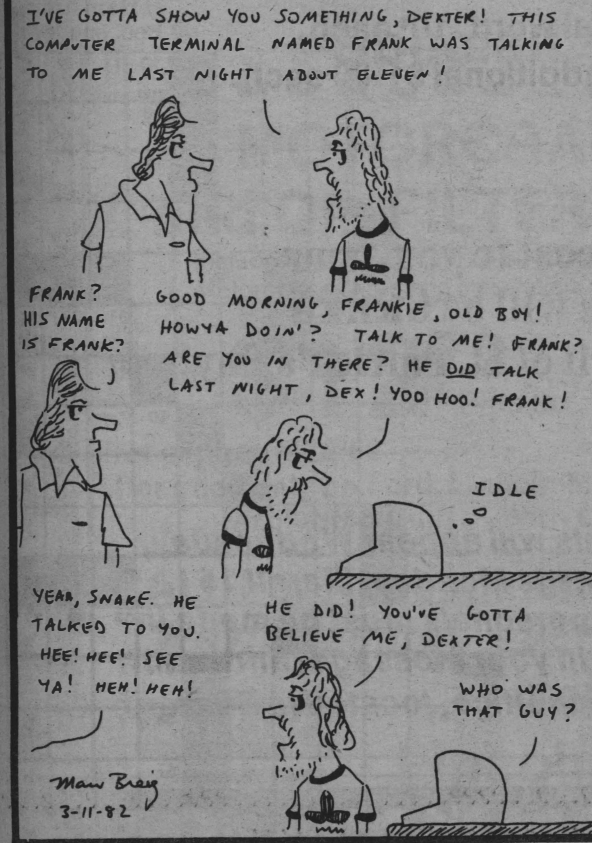 I'VE GOTTA SHOW YOU SOMETHING, DEXTER! THIS
COMPUTER TERMINAL NAMED FRANK WAS TALKING
TO ME LAST NIGHT ABOUT ELEVEN!
FRANK?
HIS NAME
IS FRANK?
GOOD MORNING, FRANKIE, OLD BOY!
HOWYA DOIN'? TALK TO ME! FRANK?
ARE YOU IN THERE? HE DID TALK
LAST NIGHT, DEX! YOO HOO! FRANK!
IDLE
YEAH, SNAKE. HE
TALKED TO YOU.
HEE! HEE! SEE
YA! HEH! HEH!
HE DID! YOU'VE GOTTA
BELIEVE ME, DEXTER!
WHO WAS
THAT GUY?
3-11-82